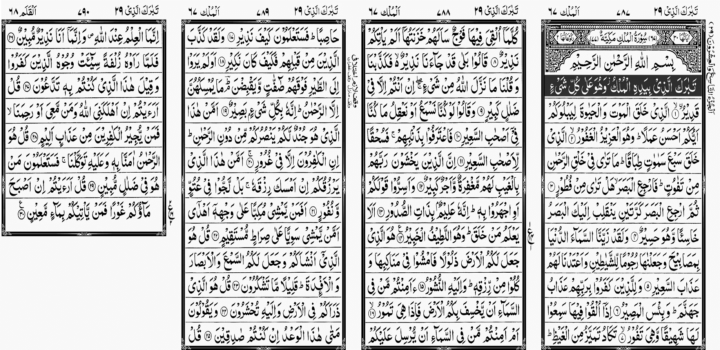 تَبٰرَكَ الَّذِیْ ٢٩ ٧٨٧ اَلْمُلْك ٦٧
سُوْرَةُ الْمُلْكِ مَكِّیَّةٌ
بِسْمِ اللّٰهِ الرَّحْمٰنِ الرَّحِیْمِ
تَبٰرَكَ الَّذِیْ بِیَدِهِ الْمُلْكُ وَهُوَ عَلٰی كُلِّ شَیْءٍ
قَدِیْرُ ۙ‏﴿١﴾ الَّذِیْ خَلَقَ الْمَوْتَ وَالْحَیٰوةَ لِیَبْلُوَكُمْ
اَیُّكُمْ اَحْسَنُ عَمَلًا ؕ وَهُوَ الْعَزِیْزُ الْغَفُوْرُ ۙ﴿٢﴾ الَّذِیْ
خَلَقَ سَبْعَ سَمٰوٰتٍ طِبَاقًا ؕ مَا تَرٰی فِیْ خَلْقِ الرَّحْمٰنِ
مِنْ تَفٰوُتٍ ؕ فَارْجِعِ الْبَصَرَ ۙ هَلْ تَرٰی مِنْ فُطُوْرٍ ﴿٣﴾
ثُمَّ ارْجِعِ الْبَصَرَ كَرَّتَیْنِ یَنْقَلِبْ اِلَیْكَ الْبَصَرُ
خَاسِئًا وَّهُوَ حَسِیْرٌ ﴿٤﴾ وَلَقَدْ زَیَّنَّا السَّمَآءَ الدُّنْیَا
بِمَصَابِیْحَ وَجَعَلْنٰهَا رُجُوْمًا لِّلشَّیٰطِیْنِ وَاَعْتَدْنَا لَهُمْ
عَذَابَ السَّعِیْرِ ﴿٥﴾ وَلِلَّذِیْنَ كَفَرُوْا بِرَبِّهِمْ عَذَابُ
جَهَنَّمَ ؕ وَبِئْسَ الْمَصِیْرُ ﴿٦﴾ اِذَاۤ اُلْقُوْا فِیْهَا سَمِعُوْا
لَهَا شَهِیْقًا وَّهِیَ تَفُوْرُ ۙ﴿٧﴾ تَكَادُ تَمَیَّزُ مِنَ الْغَیْظِ ؕ
تَبٰرَكَ الَّذِیْ ٢٩ ٧٨٨ اَلْمُلْك ٦٧
كُلَّمَاۤ اُلْقِیَ فِیْهَا فَوْجٌ سَاَلَهُمْ خَزَنَتُهَاۤ اَلَمْ یَاْتِكُمْ
نَذِیْرٌ ﴿٨﴾ قَالُوْا بَلٰی قَدْ جَآءَنَا نَذِیْرٌ ۙ۬ فَكَذَّبْنَا
وَقُلْنَا مَا نَزَّلَ اللّٰهُ مِنْ شَیْءٍ ۖۚ اِنْ اَنْتُمْ اِلَّا فِیْ
ضَلٰلٍ كَبِیْرٍ ﴿٩﴾ وَقَالُوْا لَوْ كُنَّا نَسْمَعُ اَوْ نَعْقِلُ مَا كُنَّا
فِیْۤ اَصْحٰبِ السَّعِیْرِ ﴿١٠﴾ فَاعْتَرَفُوْا بِذَنْۢبِهِمْ ۚ فَسُحْقًا
لِّاَصْحٰبِ السَّعِیْرِ ﴿١١﴾ اِنَّ الَّذِیْنَ یَخْشَوْنَ رَبَّهُمْ
بِالْغَیْبِ لَهُمْ مَّغْفِرَةٌ وَّاَجْرٌ كَبِیْرٌ ﴿١٢﴾ وَاَسِرُّوْا قَوْلَكُمْ
اَوِ اجْهَرُوْا بِهٖ ؕ اِنَّهٗ عَلِیْمٌۢ بِذَاتِ الصُّدُوْرِ ﴿١٣﴾ اَلَا
یَعْلَمُ مَنْ خَلَقَ ؕ وَهُوَ اللَّطِیْفُ الْخَبِیْرُ ﴿١٤﴾ هُوَ الَّذِیْ
جَعَلَ لَكُمُ الْاَرْضَ ذَلُوْلًا فَامْشُوْا فِیْ مَنَاكِبِهَا وَ
كُلُوْا مِنْ رِّزْقِهٖ ؕ وَاِلَیْهِ النُّشُوْرُ ﴿١٥﴾ ءَاَمِنْتُمْ مَّنْ فِی
السَّمَآءِ اَنْ یَّخْسِفَ بِكُمُ الْاَرْضَ فَاِذَا هِیَ تَمُوْرُ ۙ﴿١٦﴾
اَمْ اَمِنْتُمْ مَّنْ فِی السَّمَآءِ اَنْ یُّرْسِلَ عَلَیْكُمْ
تَبٰرَكَ الَّذِیْ ٢٩ ٧٨٩ اَلْمُلْك ٦٧
حَاصِبًا ؕ فَسَتَعْلَمُوْنَ كَیْفَ نَذِیْرِ ﴿١٧﴾ وَلَقَدْ كَذَّبَ
الَّذِیْنَ مِنْ قَبْلِهِمْ فَكَیْفَ كَانَ نَكِیْرِ ﴿١٨﴾ اَوَلَمْ یَرَوْا
اِلَی الطَّیْرِ فَوْقَهُمْ صٰٓفّٰتٍ وَّیَقْبِضْنَ ؔۘؕ مَا یُمْسِكُهُنَّ
اِلَّا الرَّحْمٰنُ ؕ اِنَّهٗ بِكُلِّ شَیْءٍۭ بَصِیْرٌ ﴿١٩﴾ اَمَّنْ هٰذَا
الَّذِیْ هُوَ جُنْدٌ لَّكُمْ یَنْصُرُكُمْ مِّنْ دُوْنِ الرَّحْمٰنِ ؕ
اِنِ الْكٰفِرُوْنَ اِلَّا فِیْ غُرُوْرٍ ۚ﴿٢٠﴾ اَمَّنْ هٰذَا الَّذِیْ
یَرْزُقُكُمْ اِنْ اَمْسَكَ رِزْقَهٗ ۚ بَلْ لَّجُّوْا فِیْ عُتُوٍّ
وَّنُفُوْرٍ ﴿٢١﴾ اَفَمَنْ یَّمْشِیْ مُكِبًّا عَلٰی وَجْهِهٖۤ اَهْدٰۤی
اَمَّنْ یَّمْشِیْ سَوِیًّا عَلٰی صِرَاطٍ مُّسْتَقِیْمٍ ﴿٢٢﴾ قُلْ هُوَ
الَّذِیْۤ اَنْشَاَكُمْ وَجَعَلَ لَكُمُ السَّمْعَ وَالْاَبْصَارَ
وَالْاَفْـِٕدَةَ ؕ قَلِیْلًا مَّا تَشْكُرُوْنَ ﴿٢٣﴾ قُلْ هُوَ الَّذِیْ
ذَرَاَكُمْ فِی الْاَرْضِ وَاِلَیْهِ تُحْشَرُوْنَ ﴿٢٤﴾ وَیَقُوْلُوْنَ
مَتٰی هٰذَا الْوَعْدُ اِنْ كُنْتُمْ صٰدِقِیْنَ ﴿٢٥﴾ قُلْ
تَبٰرَكَ الَّذِیْ ٢٩ ٧٩٠ اَلْقَلَم ٦٨
اِنَّمَا الْعِلْمُ عِنْدَ اللّٰهِ ۪ وَاِنَّمَاۤ اَنَا نَذِیْرٌ مُّبِیْنٌ ﴿٢٦﴾
فَلَمَّا رَاَوْهُ زُلْفَةً سِیْٓـَٔتْ وُجُوْهُ الَّذِیْنَ كَفَرُوْا
وَقِیْلَ هٰذَا الَّذِیْ كُنْتُمْ بِهٖ تَدَّعُوْنَ ﴿٢٧﴾ قُلْ
اَرَءَیْتُمْ اِنْ اَهْلَكَنِیَ اللّٰهُ وَمَنْ مَّعِیَ اَوْ رَحِمَنَا ۙ
فَمَنْ یُّجِیْرُ الْكٰفِرِیْنَ مِنْ عَذَابٍ اَلِیْمٍ ﴿٢٨﴾ قُلْ هُوَ
الرَّحْمٰنُ اٰمَنَّا بِهٖ وَعَلَیْهِ تَوَكَّلْنَا ۚ فَسَتَعْلَمُوْنَ مَنْ
هُوَ فِیْ ضَلٰلٍ مُّبِیْنٍ ﴿٢٩﴾ قُلْ اَرَءَیْتُمْ اِنْ اَصْبَحَ
مَآؤُكُمْ غَوْرًا فَمَنْ یَّاْتِیْكُمْ بِمَآءٍ مَّعِیْنٍ ﴿٣٠﴾